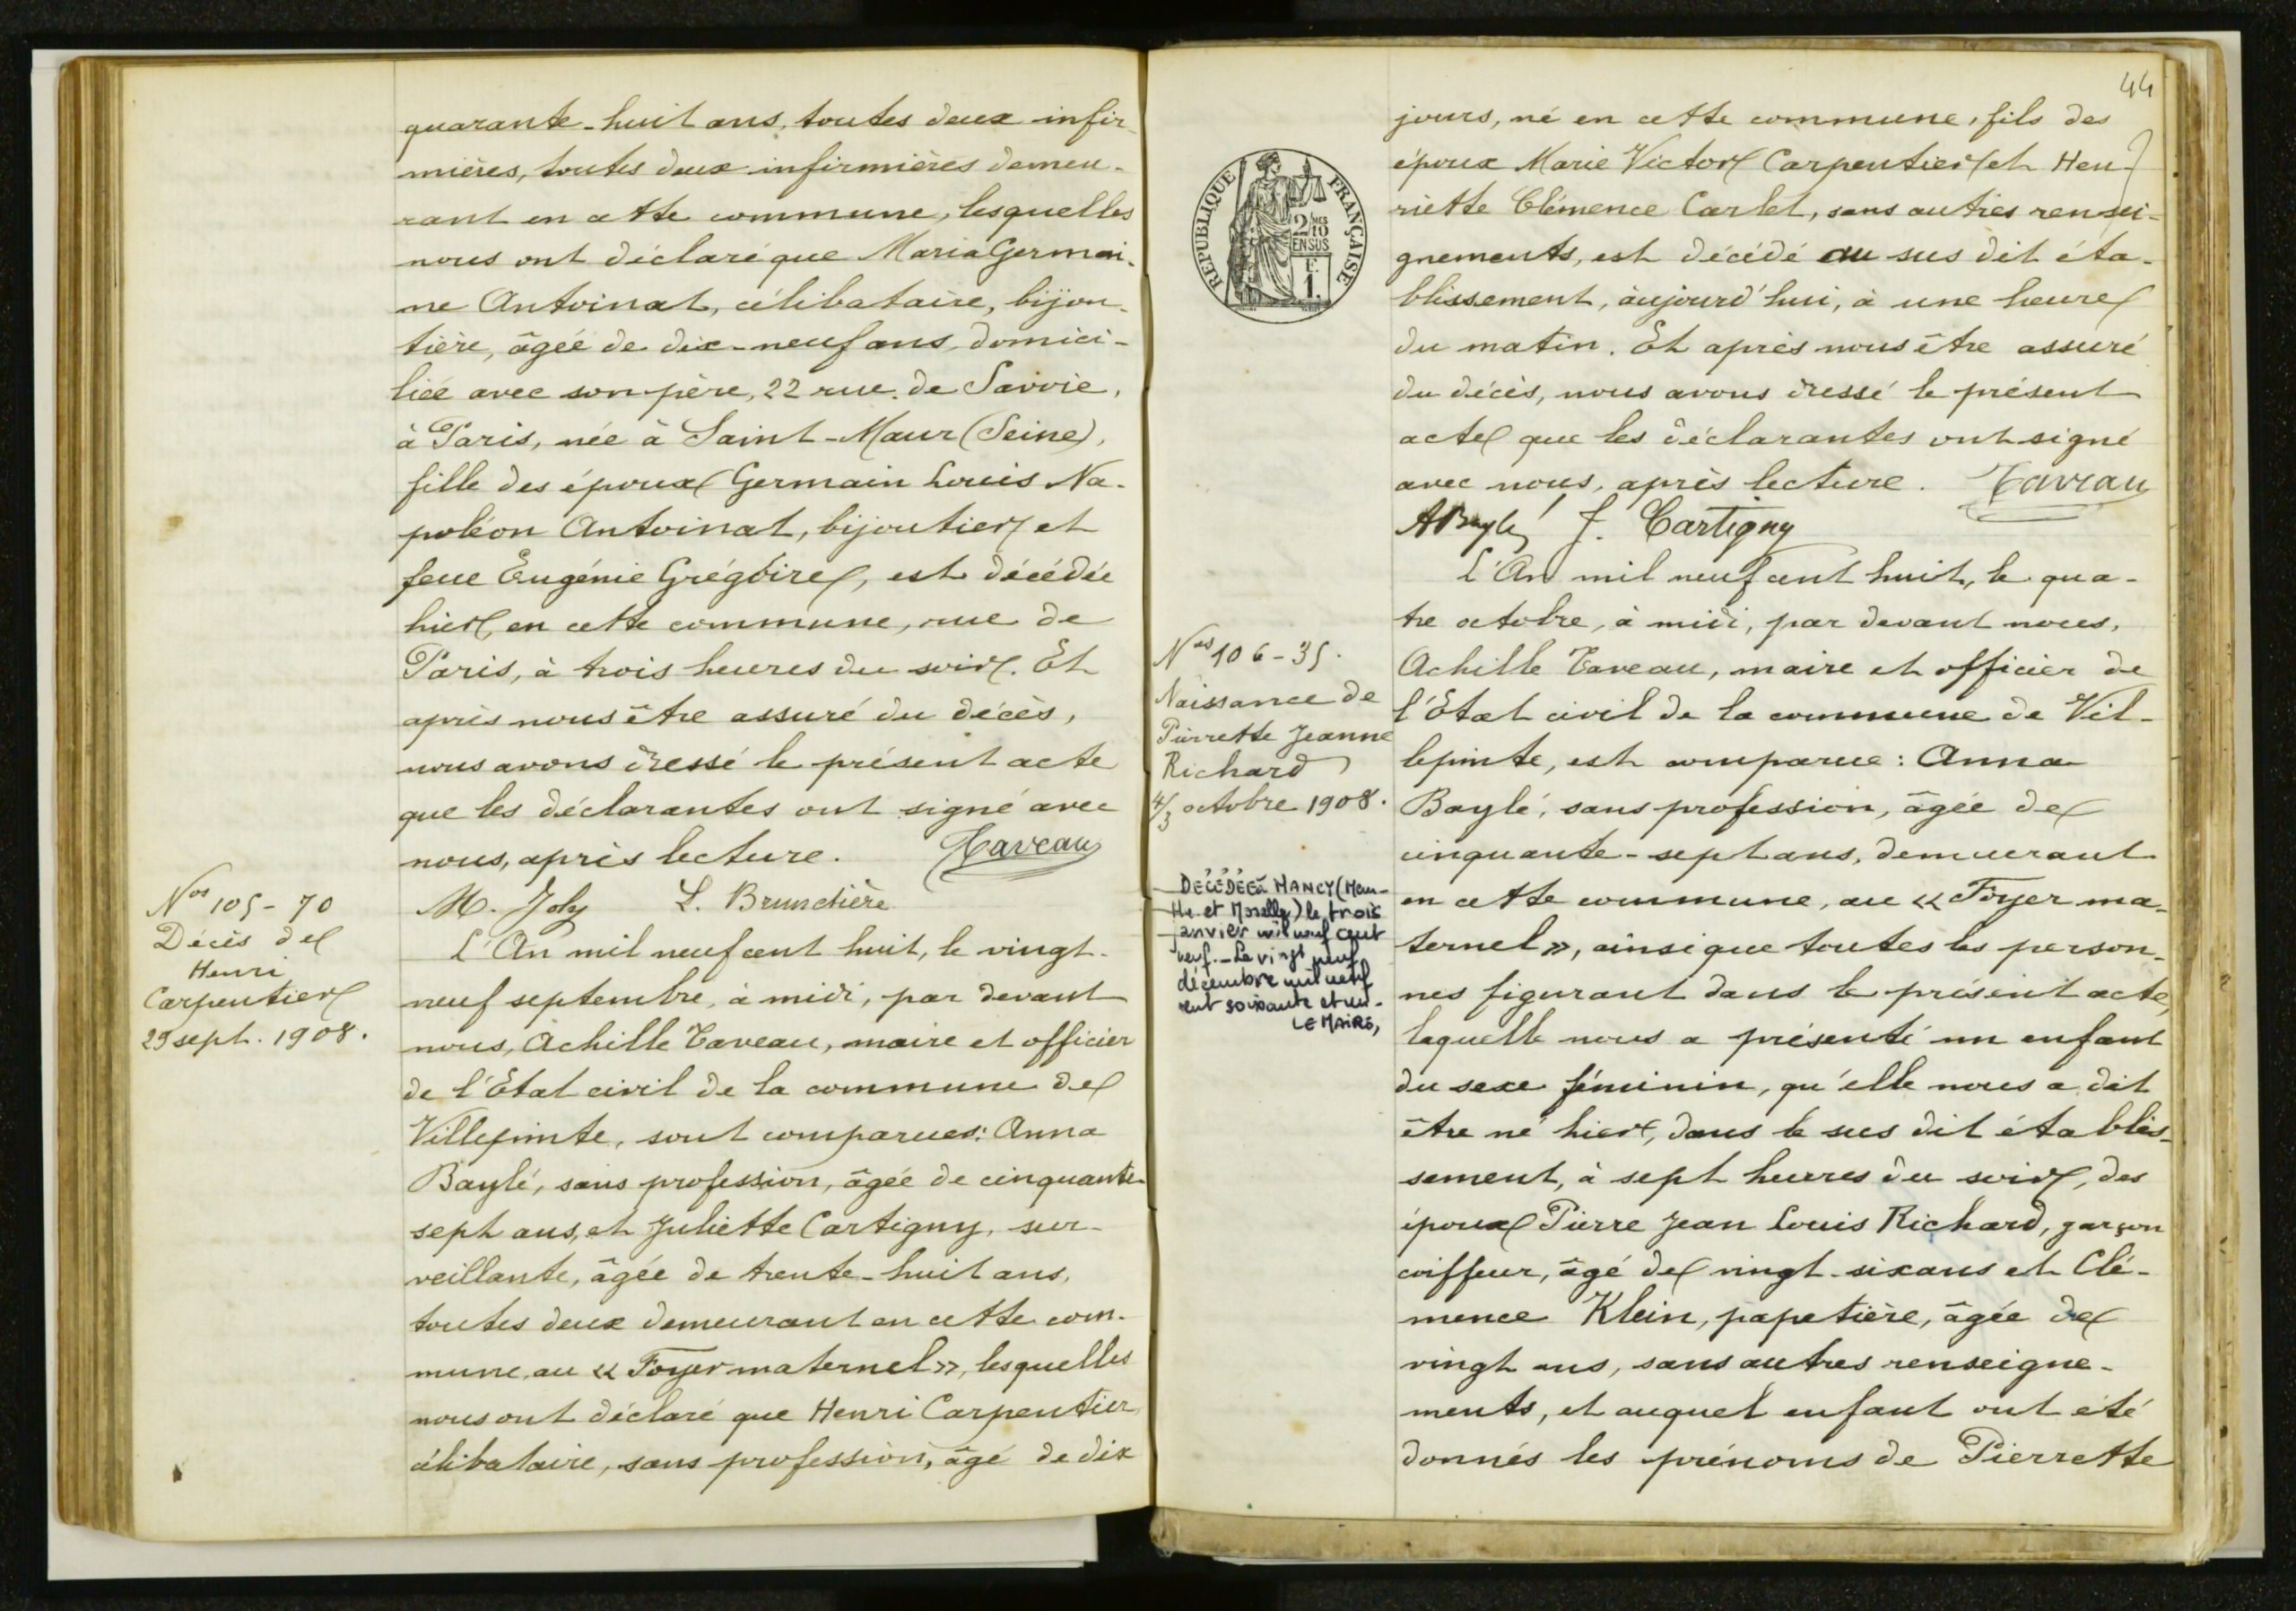 quarante-huit ans, toutes deux infir-
mières, toutes deux infirmières demeu-
rant en cette commune, lesquelles
nous ont déclaré que Maria Germai-
ne Antoinat, célibataire, bijou-
tière, âgée de dix-neuf ans, domici-
liée avec son père, 22 rue de Savoie,
à Paris, née à Saint-Maur (Seine),
fille des époux Germain Louis Na-
poléon Antoinat, bijoutier et
feue Eugénie Grégoire, est décédée
hier, en cette commune, rue de
Paris, à trois heures du soir. Et
après nous être assuré du décès,
nous avons dressé le présent acte
que les déclarantes ont signé avec
nous, après lecture. Taveau
M. Joly L. Brundière
Nos 105-70
Décès de
Henri
Carpentier
29 sept. 1908.
L'An mil neuf cent huit, le vingt-
neuf septembre, à midi, par devant
nous, Achille Taveau, maire et officier
de l'Etat civil de la commune de
Villepinte, sont comparues: Anna
Baylé, sans profession, âgée de cinquante-
sept ans, et Juliette Cartigny, sur-
veillante, âgée de trente-huit ans,
toutes deux demeurant en cette com-
mune, au « Foyer maternel », lesquelles
nous ont déclaré que Henri Carpentier
célibataire, sans profession, âgé de dix
44
jours, né en cette commune, fils des
époux Marie Victor Carpentier et Hen-
riette Clémence Carlet, sans autres rensei-
gnements, est décédé au sus dit éta-
blissement, aujourd'hui, à une heure
du matin. Et après nous être assuré
du décès, nous avons dressé le présent
acte que les déclarantes ont signé
avec nous, après lecture. Taveau
ABaylé J. Cartigny
REPUBLIQUE FRANÇAISE
2/10 MES
EN SUS
F.
1.
Nos 106-35.
Naissance de
Pierrette Jeanne
Richard
4/3 octobre 1908.
DÉCÉDÉE à NANCY (Meur-
the et Moselle) le trois
janvier mil neuf cent
neuf. - Le vingt neuf
décembre mil neuf
cent soixante et un.
LE MAIRE,
L'An mil neuf cent huit, le qua-
tre octobre, à midi, par devant nous,
Achille Taveau, maire et officier de
l'Etat civil de la commune de Vil-
lepinte, est comparue: Anna
Baylé, sans profession, âgée de
cinquante-sept ans, demeurant
en cette commune, au « Foyer ma-
ternel », ainsi que toutes les person-
nes figurant dans le présent acte,
laquelle nous a présenté un enfant
du sexe féminin, qu'elle nous a dit
être né hier, dans le sus dit établis-
sement, à sept heures du soir, des
époux Pierre Jean Louis Richard, garçon
coiffeur, âgé de vingt-six ans et Clé-
mence Klein, papetière, âgée de
vingt ans, sans autres renseigne-
ments, et auquel enfant ont été
donnés les prénoms de Pierrette